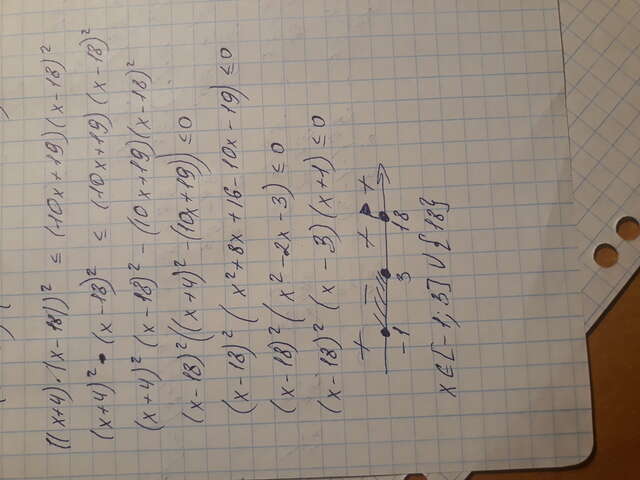 ((x+4)·(x-18))² ≤ (10x+19)(x-18)²
(x+4)² • (x-18)² ≤ (10x+19)(x-18)²
(x+4)² (x-18)² - (10x+19)(x-18)²
(x-18)²((x+4)² - (10x+19)) ≤ 0
(x-18)² (x²+8x+16-10x-19) ≤ 0
(x-18)² (x²-2x-3) ≤ 0
(x-18)² (x-3)(x+1) ≤ 0
+ - + +
-1 3 18
x∈[-1; 3] ∪ {18}